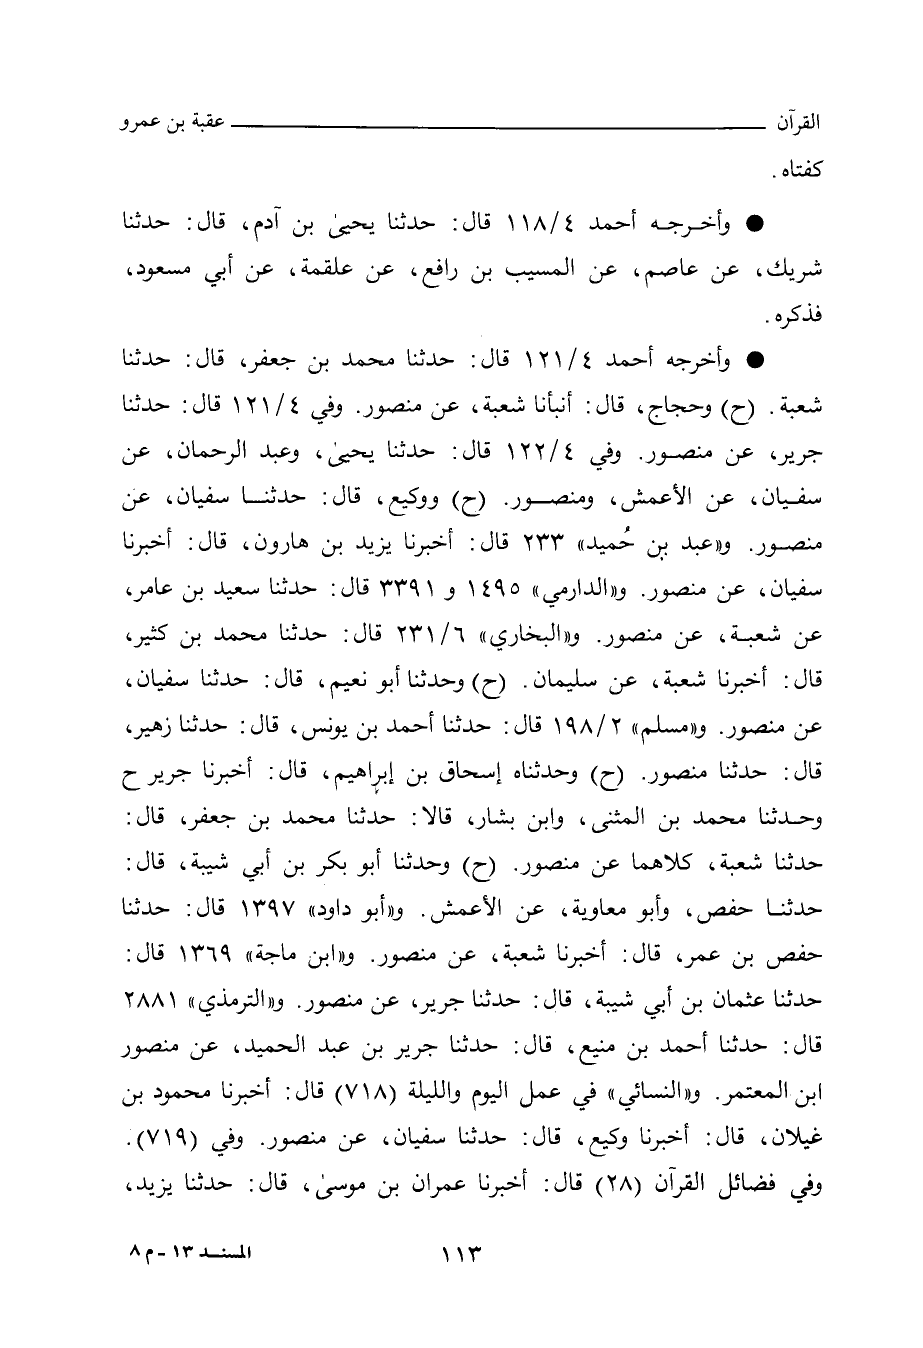 القرآن ـــــــــــــ عقبة بن عمرو
كفتاه.
● وأخرجه أحمد ١١٨/٤ قال: حدثنا يحيىٰ بن آدم، قال: حدثنا
شريك، عن عاصم، عن المسيب بن رافع، عن علقمة، عن أبي مسعود،
فذكره.
● وأخرجه أحمد ١٢١/٤ قال: حدثنا محمد بن جعفر، قال: حدثنا
شعبة. (ح) وحجاج، قال: أنبأنا شعبة، عن منصور. وفي ١٢١/٤ قال: حدثنا
جرير، عن منصور. وفي ١٢٢/٤ قال: حدثنا يحيىٰ، وعبد الرحمان، عن
سفيان، عن الأعمش، ومنصور. (ح) ووكيع، قال: حدثنا سفيان، عن
منصور. و«عبد بن حُميد» ٢٣٣ قال: أخبرنا يزيد بن هارون، قال: أخبرنا
سفيان، عن منصور. و«الدارمي» ١٤٩٥ و ٣٣٩١ قال: حدثنا سعيد بن عامر،
عن شعبة، عن منصور. و«البخاري» ٢٣١/٦ قال: حدثنا محمد بن كثير،
قال: أخبرنا شعبة، عن سليمان. (ح) وحدثنا أبو نعيم، قال: حدثنا سفيان،
عن منصور. و«مسلم» ١٩٨/٢ قال: حدثنا أحمد بن يونس، قال: حدثنا زهير،
قال: حدثنا منصور. (ح) وحدثناه إسحاق بن إبراهيم، قال: أخبرنا جرير ح
وحدثنا محمد بن المثنى، وابن بشار، قالا: حدثنا محمد بن جعفر، قال:
حدثنا شعبة، كلاهما عن منصور. (ح) وحدثنا أبو بكر بن أبي شيبة، قال:
حدثنا حفص، وأبو معاوية، عن الأعمش. و«أبو داود» ١٣٩٧ قال: حدثنا
حفص بن عمر، قال: أخبرنا شعبة، عن منصور. و«ابن ماجة» ١٣٦٩ قال:
حدثنا عثمان بن أبي شيبة، قال: حدثنا جرير، عن منصور. و«الترمذي» ٢٨٨١
قال: حدثنا أحمد بن منيع، قال: حدثنا جرير بن عبد الحميد، عن منصور
ابن المعتمر. و«النسائي» في عمل اليوم والليلة (٧١٨) قال: أخبرنا محمود بن
غيلان، قال: أخبرنا وكيع، قال: حدثنا سفيان، عن منصور. وفي (٧١٩).
وفي فضائل القرآن (٢٨) قال: أخبرنا عمران بن موسىٰ، قال: حدثنا يزيد،
١١٣
المسند ١٣ - م ٨